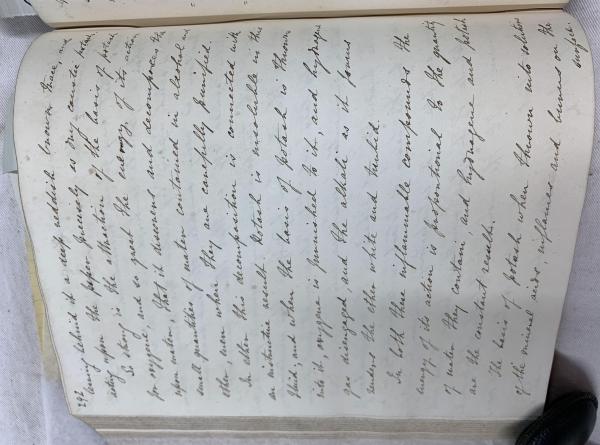 292
leaving behind it a deep reddish brown trace, and
acting upon the paper precisely as dry caustic potash.
So strong is the attraction of the basis of potash
for oxygene, and so great the energy of its action
upon water, that it discovers and decomposes the
small quantities of water contained in alcohol and
ether, even when they are carefully purified.
In ether this decomposition is connected with
an instructive result. Potash is insoluble in this
fluid; and when the basis of potash is thrown
into it, oxygene is furnished to it, and hydrogene
gas disengaged, and the alkali as it forms
renders the ether white and turbid.
In both these inflammable compounds the
energy of its action is proportional to the quantity
of water they contain and hydrogene and potash
are the constant results.
The basis of potash when thrown into solutions
of the mineral acids, inflames and burns on the
surface.